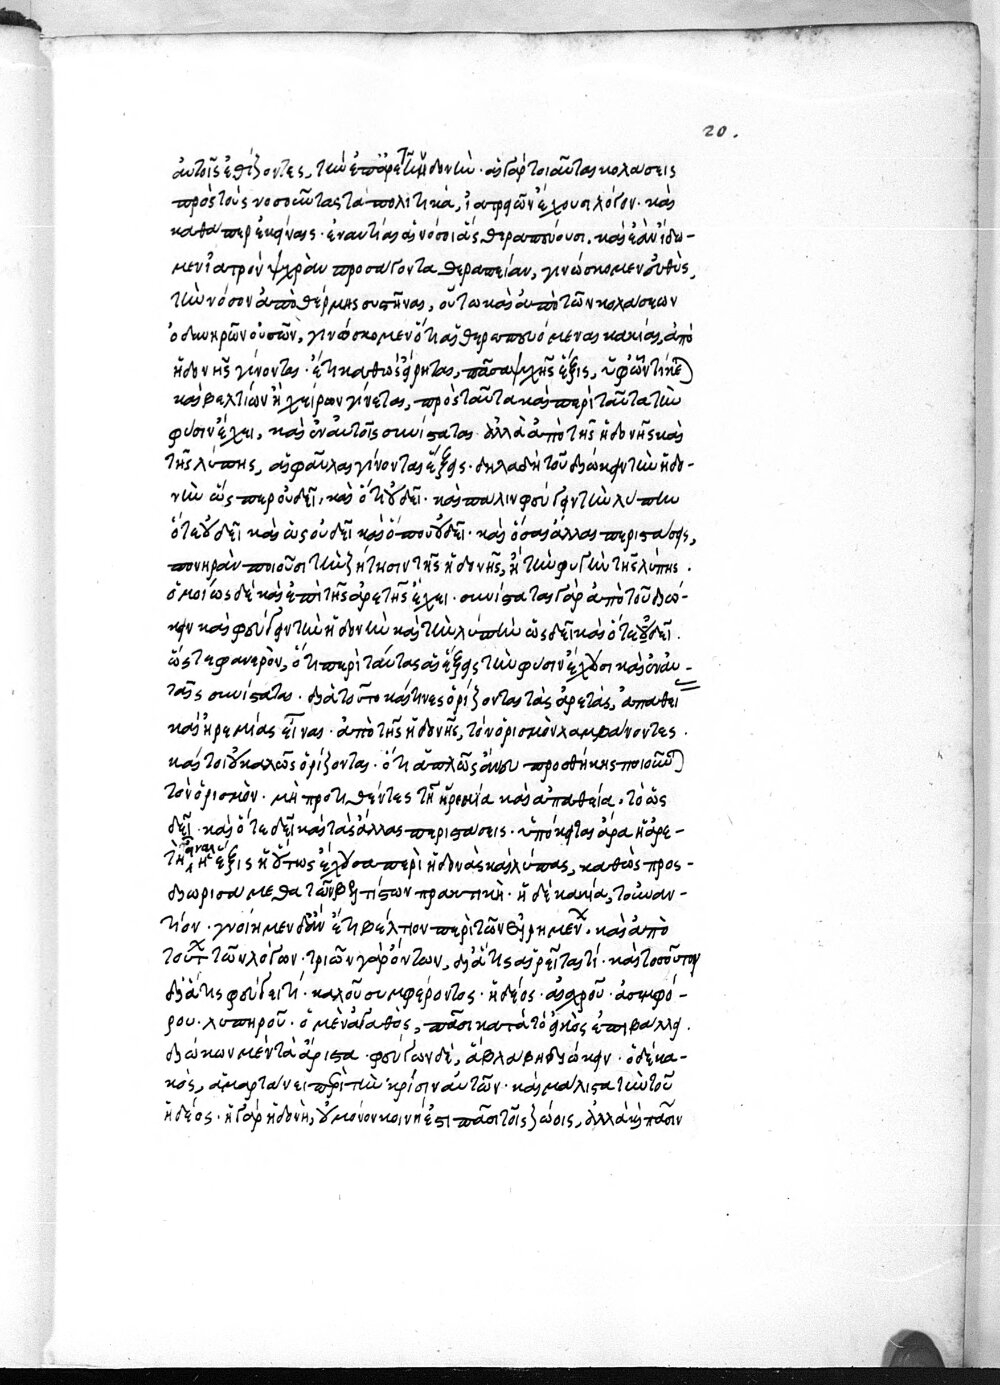 20.
αὐτοῖς ἐθίζοντες, τὴν ἐπάρετον ἡδονήν· αἱ γὰρ τοιαῦται κολάσεις
πρὸς τοὺς νοσοῦντας τὰ πολιτικὰ, ἰατρῶν ἔχουσι λόγον· καὶ
καθάπερ ἐκείναις· ἐναντίαις αἱ νόσοι ἀεὶ θεραπεύουσι. καὶ ἐὰν ἴδω-
μεν ἰατρὸν ψυχρὰν προσάγοντα θεραπείαν, γινώσκομεν εὐθὺς,
τὴν νόσον ἀπὸ θέρμης συστῆναι, οὕτω καὶ ἀπὸ τῶν κολάσεων
ὀδυνηρῶν οὐσῶν, γινώσκομεν ὅτι αἱ θεραπευόμεναι κακίαι, ἀπὸ
ἡδονῆς γίνονται· ἔτι καθὼς εἴρηται, πᾶσα ψυχῆς ἕξις, ὑφ' ὧν τίκτε
καὶ βελτίων ἢ χείρων γίνεται, πρὸς ταῦτα καὶ περὶ ταῦτα τὴν
φύσιν ἔχει, καὶ ἐν αὐτοῖς συνίσταται· ἀλλὰ ἀπὸ τῆς ἡδονῆς καὶ
τῆς λύπης, αἱ φαῦλαι γίνονται ἕξεις· δηλαδὴ τοῦ διώκειν τὴν ἡδο-
νὴν ὥσπερ οὐ δεῖ, καὶ ὅτι οὐ δεῖ· καὶ πάλιν φεύγειν τὴν λύπην
ὅτε οὐ δεῖ καὶ ὡς οὐ δεῖ καὶ ὅπου οὐ δεῖ· καὶ ὅσαι ἄλλαι περιστάσεις,
πονηρὰν ποιοῦσι τὴν ζήτησιν τῆς ἡδονῆς, ἢ τὴν φυγὴν τῆς λύπης.
ὁμοίως δὲ καὶ ἐπὶ τῆς ἀρετῆς ἔχει· συνίσταται γὰρ ἀπὸ τοῦ διώ-
κειν καὶ φεύγειν τὴν ἡδονὴν καὶ τὴν λύπην ὡς δεῖ καὶ ὅτε οὐ δεῖ.
ὥστε φανερὸν, ὅτι περὶ ταύτας αἱ ἕξεις τὴν φύσιν ἔχουσι καὶ ἐν αὐ-
ταῖς συνίσταται· διὰ τοῦτο καί τινες ὁρίζονται τὰς ἀρετὰς, ἀπαθεί
καὶ ἠρεμίας εἶναι· ἀπὸ τῆς ἡδονῆς, τὸν ὁρισμὸν λαμβάνοντες.
καίτοι οὐ καλῶς ὁρίζονται· ὅτι ἁπλῶς ἄνευ προσθήκης ποιοῦν
τὸν ὁρισμὸν· μὴ προτιθέντες τῇ ἠρεμία καὶ ἀπαθεία· τὸ ὡς
δεῖ· καὶ ὅτε δεῖ καὶ τὰς ἄλλας περιστάσεις· ὑπόκειται ἄρα ἡ ἀρε-
τὴ ἡ ἕξις ἡ οὕτως ἔχουσα περὶ ἡδονὰς καὶ λύπας, καθὼς προσ-
διωρισάμεθα τῶν βελτίστων πρακτικὴ· ἡ δὲ κακία, τοὐναν-
τίον· γνοίημεν δ' ἂν ἔτι βέλτιον περὶ τῶν εἰρημένων· καὶ ἀπὸ
τούτων τῶν λόγων· τριῶν γὰρ ὄντων, δι' ἅ τις αἱρεῖταί τι· καὶ τοσούτων
δι' ἅ τις φεύγει τί· καλοῦ συμφέροντος· ἡδέος· αἰσχροῦ· ἀσυμφό-
ρου· λυπηροῦ· ὁ μὲν ἀγαθὸς, πᾶσι κατὰ τὸ εἰκὸς ἐπιβάλλει.
διώκων μὲν τὰ ἄριστα· φεύγων δὲ, ἀβλαβῆ διώκειν· ὁ δὲ κα-
κὸς, ἁμαρτάνει περὶ τὴν κρίσιν αὐτῶν· καὶ μάλιστα τὴν τοῦ
ἡδέος· ἡ γὰρ ἡδονὴ, οὐ μόνον κοινὴ ἐστι πᾶσι τοῖς ζώοις, ἀλλὰ καὶ πᾶσιν